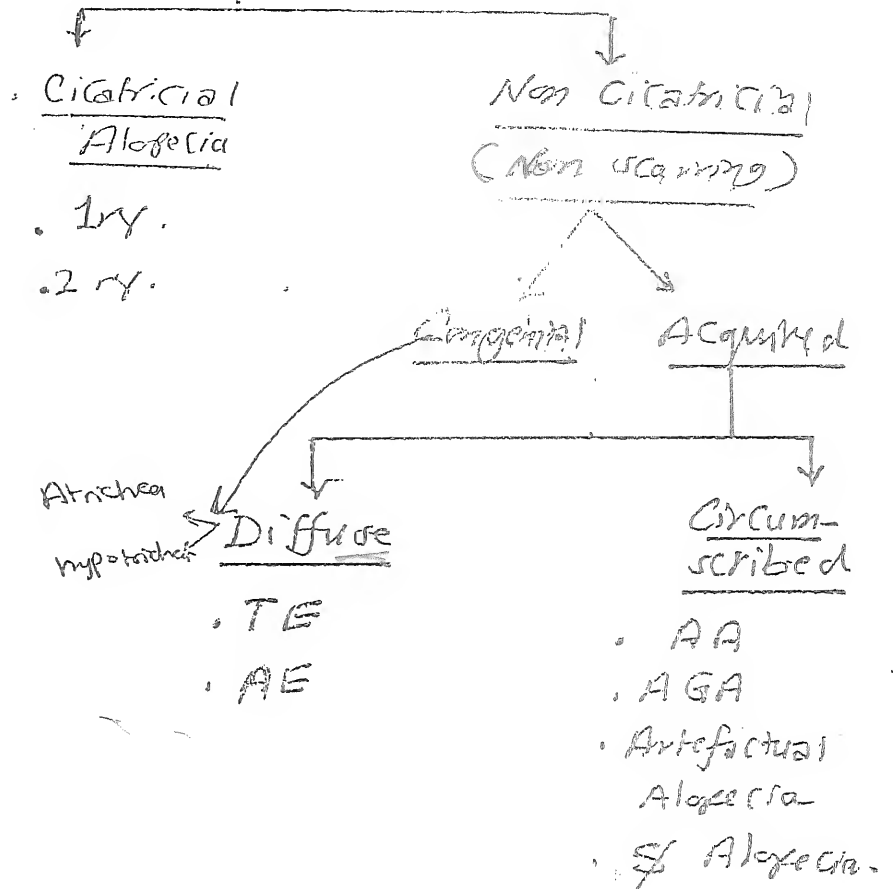 Cicatricial
Alopecia
. 1ry.
. 2ry.
Non Cicatricial
(Non scarring)
Congenital
Acquired
Atrichea
Diffuse
. TE
. AE
Circum-
scribed
. AA
. AGA
. Artefactual
Alopecia
. Alopecia.